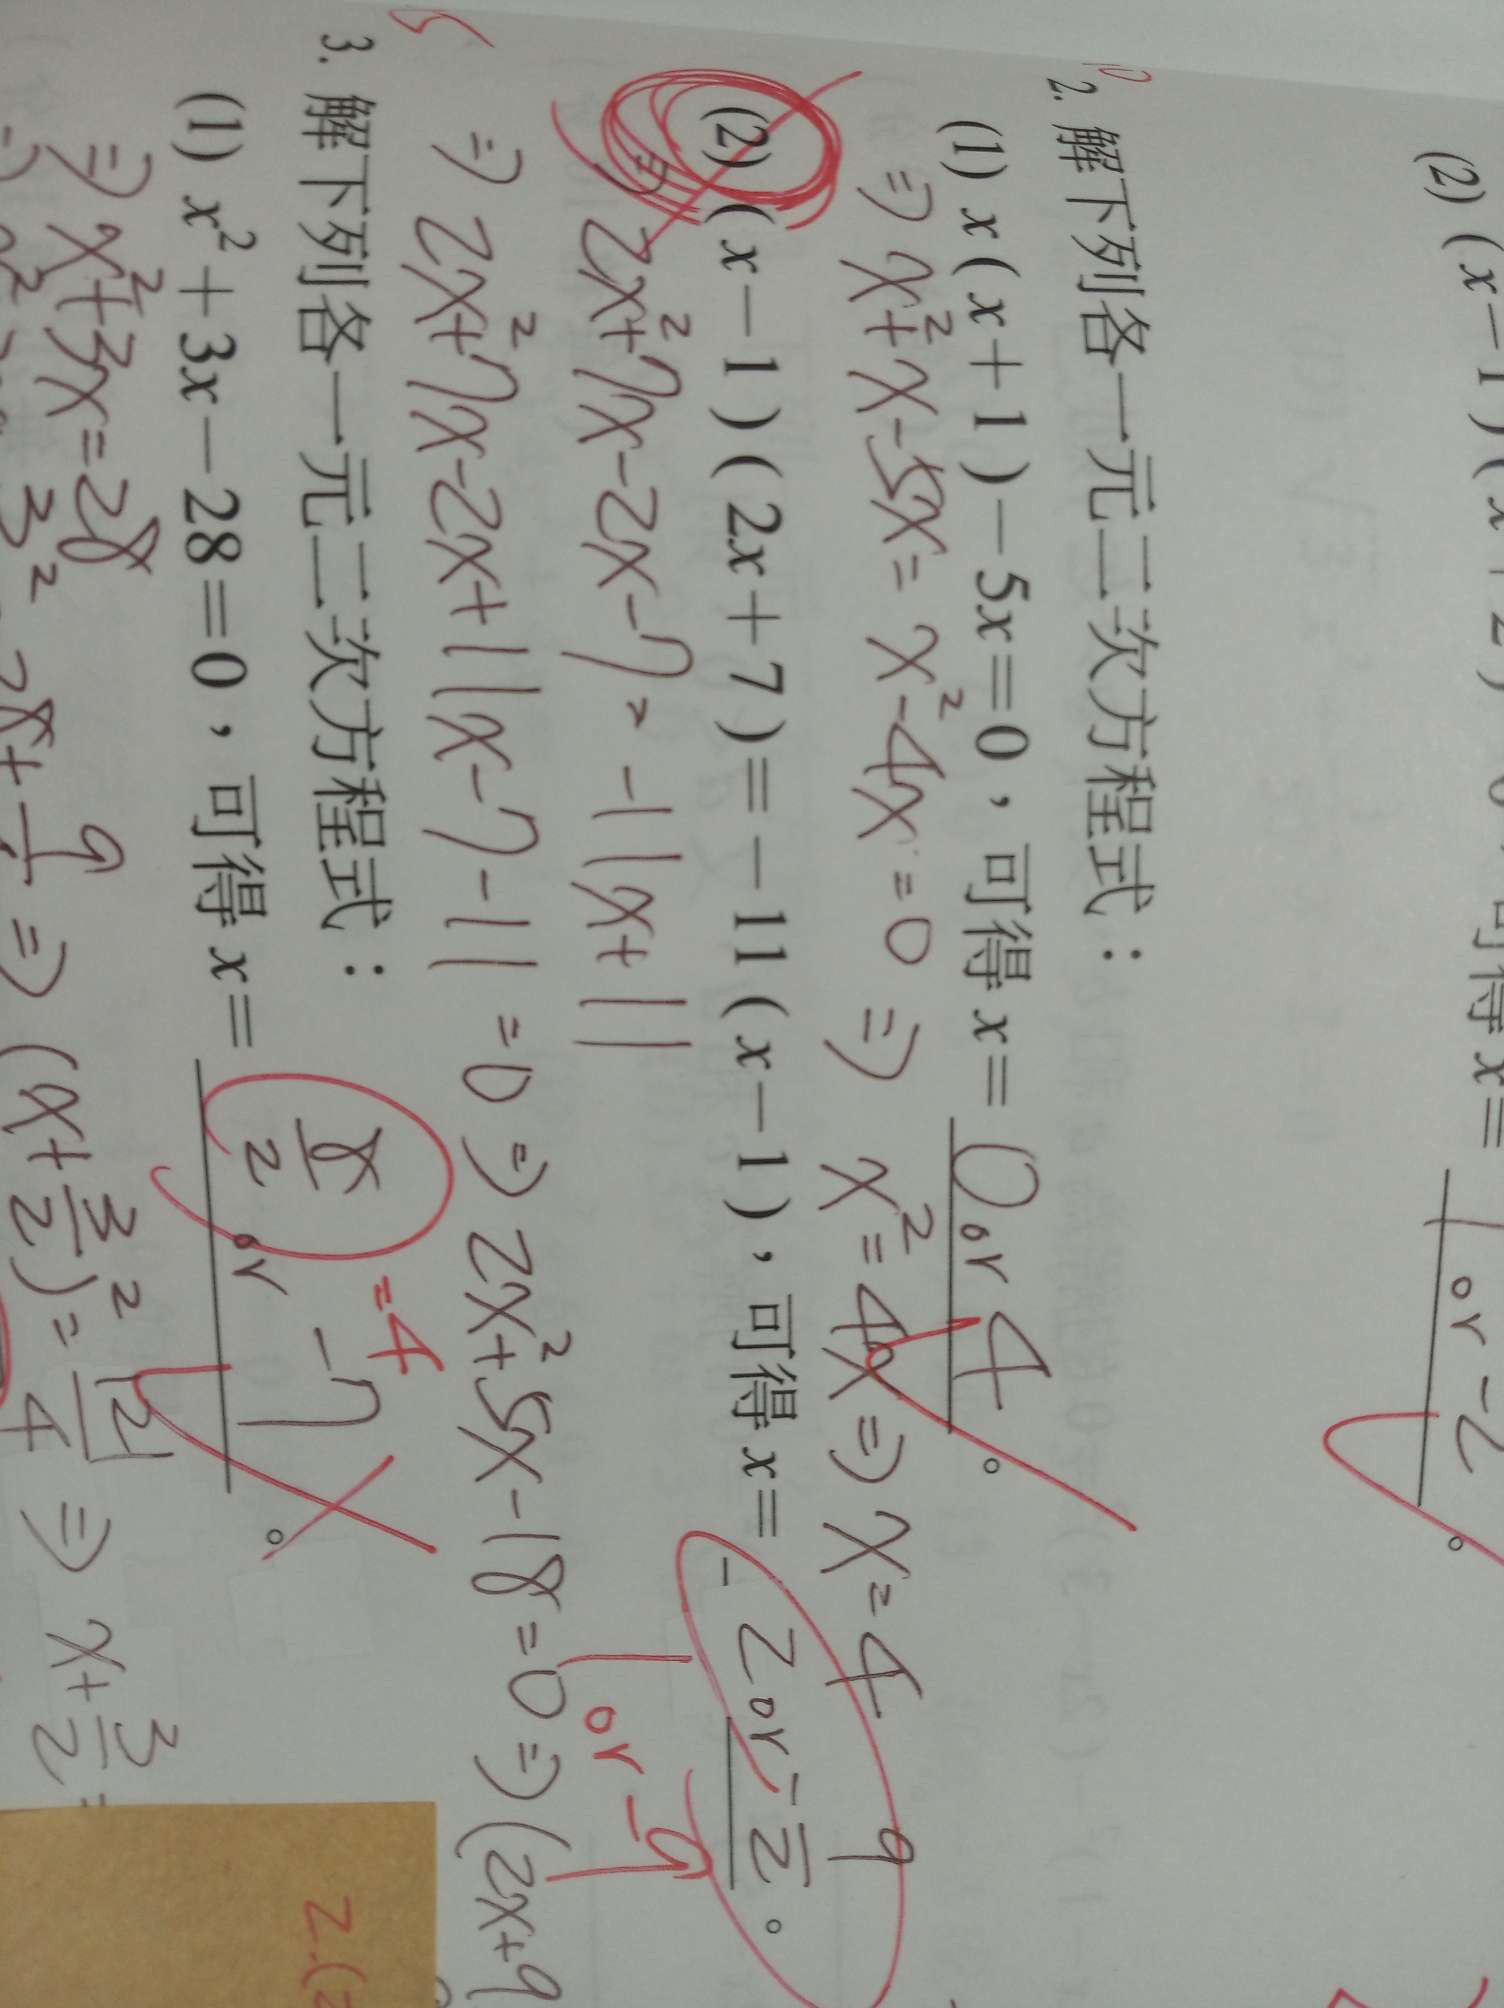 (2) (x-1)(x+2)
可得 x= 1 or -2 。
10
2. 解下列各一元二次方程式：
(1) x(x+1)-5x=0，可得 x= 0 or 4 。
⇒ x²+x-5x= x²-4x=0 ⇒ x²=4x ⇒ x=4
(2) (x-1)(2x+7)=-11(x-1)，可得 x= -2 or -9/2 。
⇒ 2x²+7x-2x-7=-11x+11
1 or -9
⇒ 2x²+7x-2x+11x-7-11=0 ⇒ 2x²+5x-18=0 ⇒ (2x+9
5
3. 解下列各一元二次方程式：
(1) x²+3x-28=0，可得 x= 8/2 or -7 。
=4
⇒ x²+3x=28
⇒ (x+3/2)²=121/4 ⇒ x+3/2=
2.(2